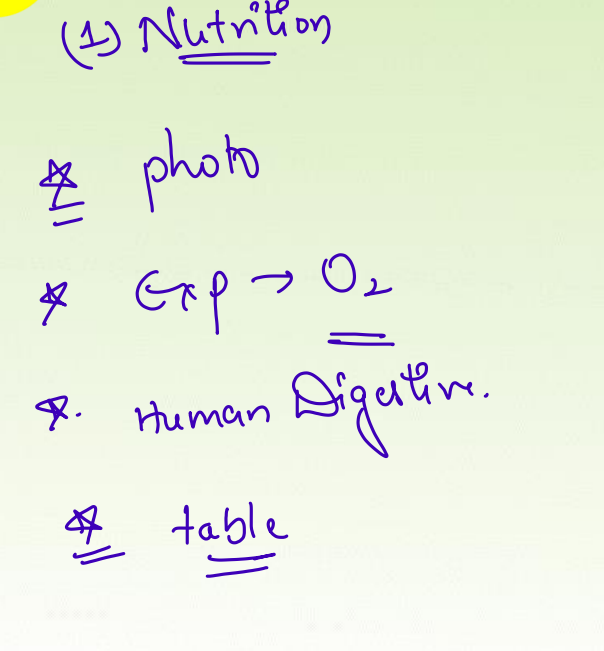 (1) Nutrition
photo
Exp → O₂
Human Digestive.
table